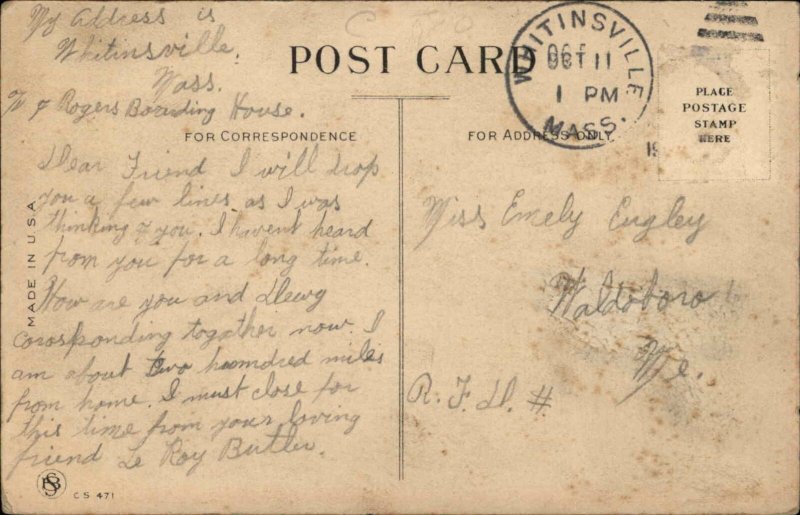 My Address is
Whitinsville.
Mass.
Rogers Boarding House.
POST CARD
WHITINSVILLE
OCT 11
1 PM
MASS.
19
PLACE
POSTAGE
STAMP
HERE
FOR CORRESPONDENCE
FOR ADDRESS ONLY
Dear Friend I will drop
you a few lines as I was
thinking of you. I havent heard
from you for a long time.
How are you and
corosponding together now. I
am about two hoomdred miles
from home. I must close for
this time from your loving
friend Le Roy Butler.
MADE IN U.S.A.
C S 471
Miss Emely Eugley
Waldoboro
Me.
R. F. D. #